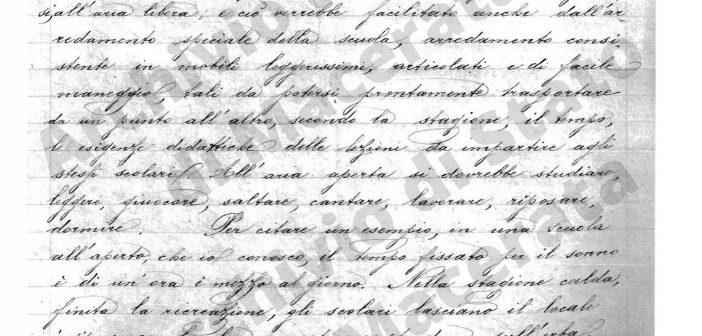 si, all'aria libera; e ciò verrebbe facilitato anche dall'ar
redamento speciale della scuola, arredamento consi
stente in mobili leggerissimi, articolati e di facile
maneggio, tali da potersi prontamente trasportare
da un punto all'altro, secondo la stagione, il tempo,
le esigenze didattiche delle lezioni da impartire agli
stessi scolari. All'aria aperta si dovrebbe studiare,
leggere, giuocare, saltare, cantare, lavorare, riposare,
dormire. Per citare un esempio, in una scuola
all'aperto, che io conosco, il tempo fissato per il sonno
è di un'ora e mezzo al giorno. Nella stagione calda,
finita la ricreazione, gli scolari lasciano il locale
sull'erba
Archivio di Stato
di Macerata
Archivio di Stato
di Macerata